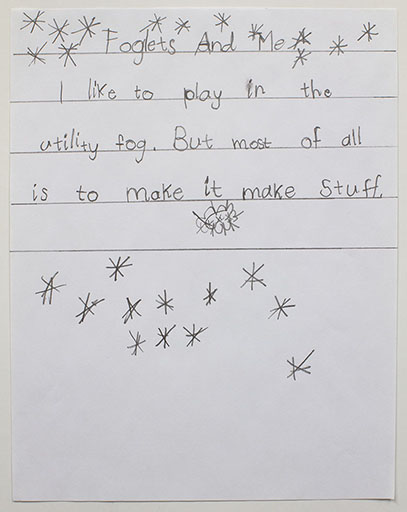 Foglets And Me
I like to play in the
utility fog. But most of all
is to make it make stuff.